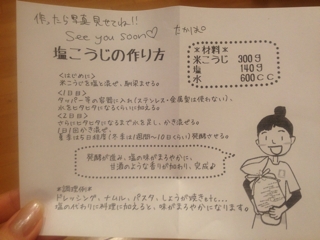 作ったら写真見せてね!!
See you soon♡
ちかぽ
塩こうじの作り方
*材料*
米こうじ 300g
塩 140g
水 600cc
<はじめに>
米こうじを塩と混ぜ、馴染ませる。
<1日目>
タッパー等の容器に入れ(ステンレス・金属製は使わない)、
水をヒタヒタになるくらいに加える。
<2日目>
さらにヒタヒタになるまで水を足し、かき混ぜる。
1日1回かき混ぜ、
常温は5日程度(冬場は1週間〜10日くらい)発酵させる。
発酵が進み、塩の味がまろやかに、
甘酒のような香りが加わり、完成♪
*調理例*
ドレッシング、ナムル、パスタ、しょうが焼きetc...
塩の代わりに料理に加えると、味がまろやかになります。